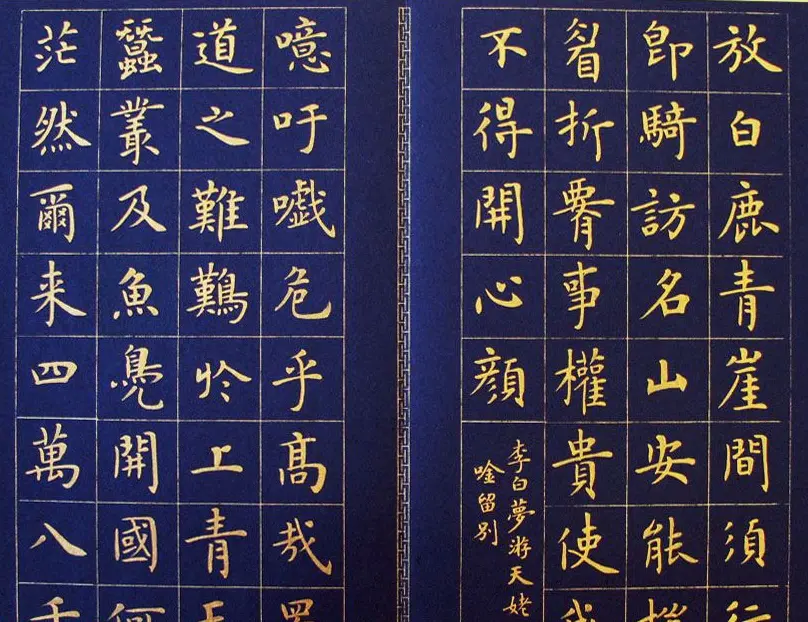 放白鹿青崖間須行
即騎訪名山安能摧
眉折腰事權貴使我
不得開心顏
李白夢游天姥
唫留別
噫吁嚱危乎髙哉蜀
道之難難扵上青天
蠶叢及魚鳧開國何
茫然爾来四萬八千